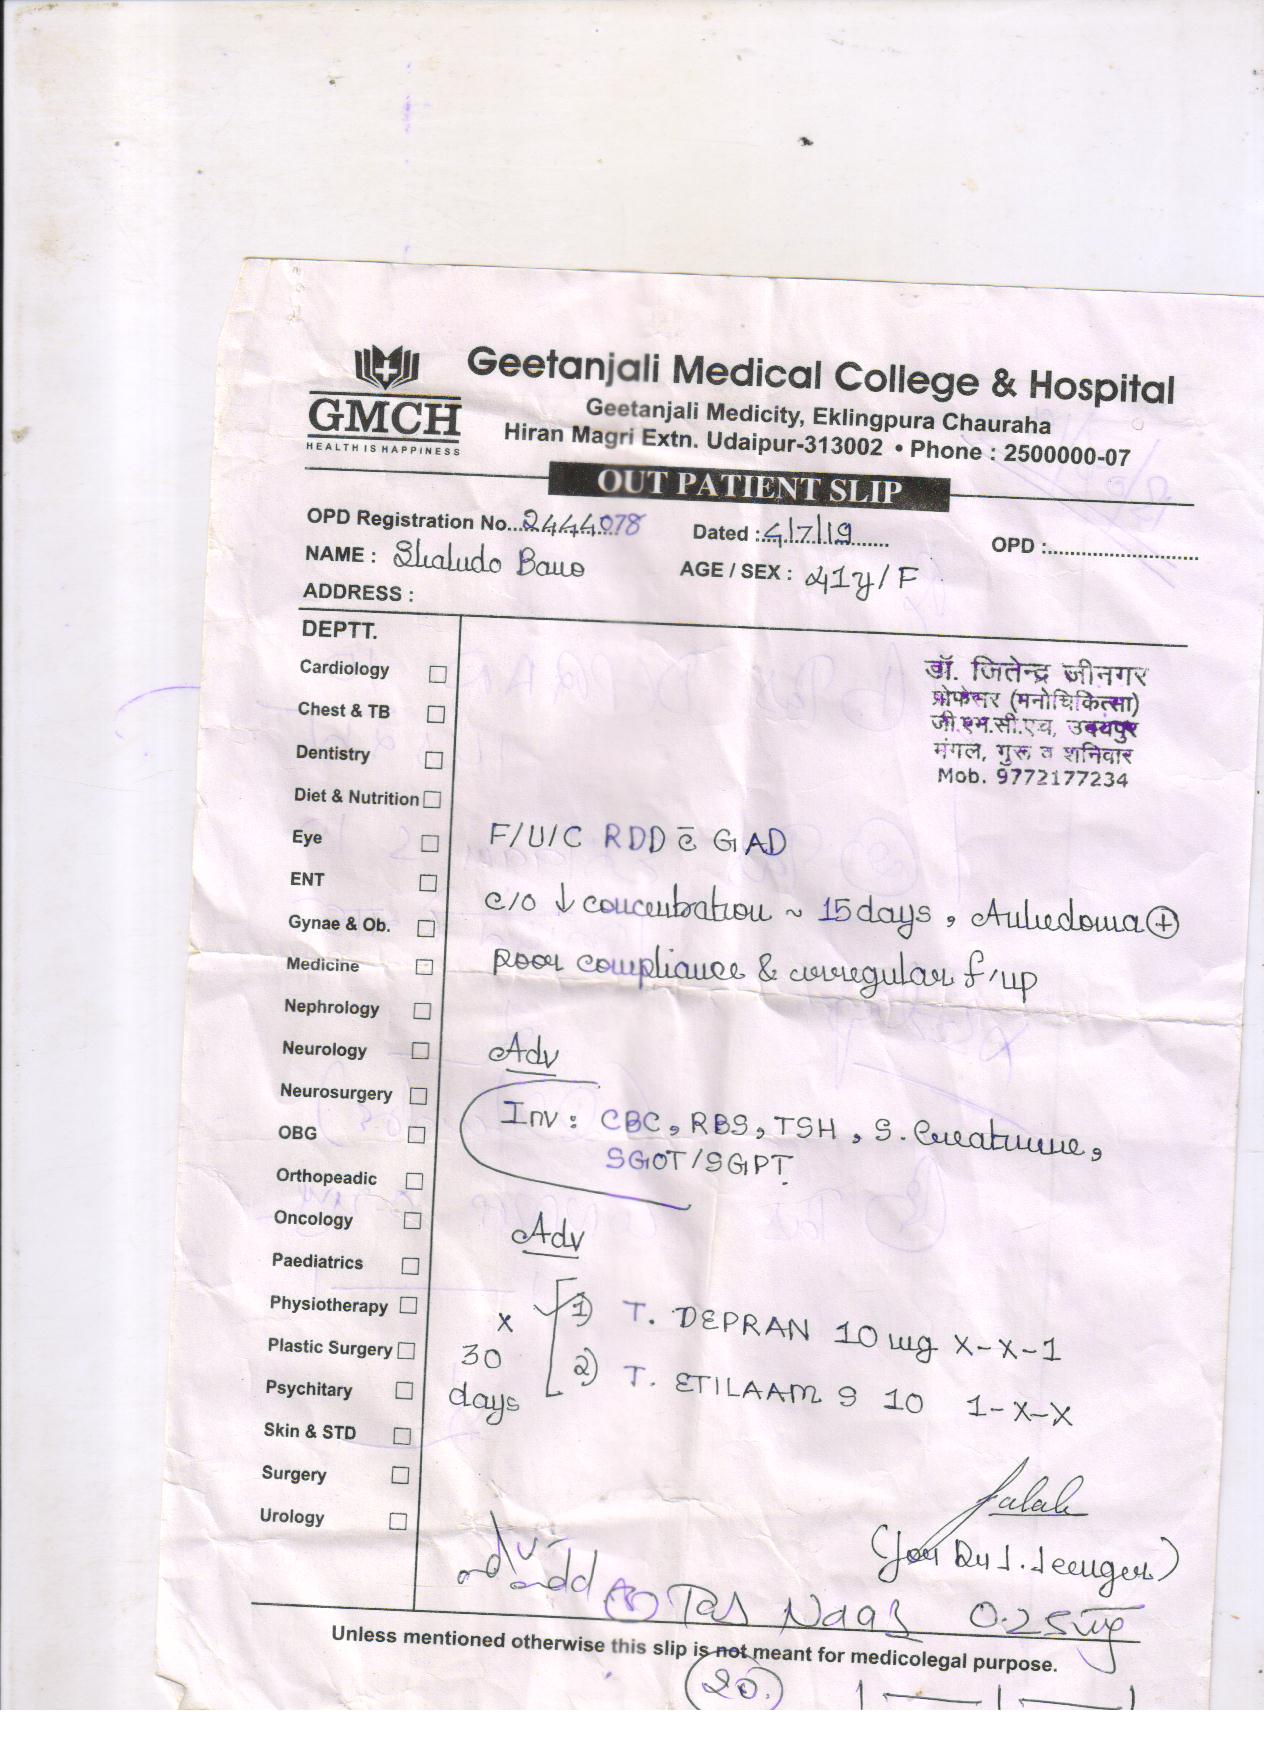 GMCH
HEALTH IS HAPPINESS
Geetanjali Medical College & Hospital
Geetanjali Medicity, Eklingpura Chauraha
Hiran Magri Extn. Udaipur-313002 • Phone : 2500000-07
OUT PATIENT SLIP
OPD Registration No...2444078 Dated :4/7/19....... OPD :............................
NAME : Shaludo Bano AGE / SEX : 41y/F
ADDRESS :
DEPTT.
Cardiology
Chest & TB
Dentistry
Diet & Nutrition
Eye
ENT
Gynae & Ob.
Medicine
Nephrology
Neurology
Neurosurgery
OBG
Orthopeadic
Oncology
Paediatrics
Physiotherapy
Plastic Surgery
Psychitary
Skin & STD
Surgery
Urology
डॉ. जितेन्द्र जीनगर
प्रोफेसर (मनोचिकित्सा)
जी.एम.सी.एच, उदयपुर
मंगल, गुरू व शनिवार
Mob. 9772177234
F/U/C RDD c̄ GAD
c/o ↓ concentration ~ 15 days, Anhedonia ⊕
poor compliance & irregular f/up
Adv
Inv : CBC, RBS, TSH, S. Creatinine,
SGOT/SGPT
Adv
x 30 days
1) T. DEPRAN 10 mg x-x-1
2) T. ETILAAM S 10 1-x-x
(for Dr J. Jeenger)
adv add Tab 0.25 mg
Unless mentioned otherwise this slip is not meant for medicolegal purpose.
20.
1 — 1 — 1